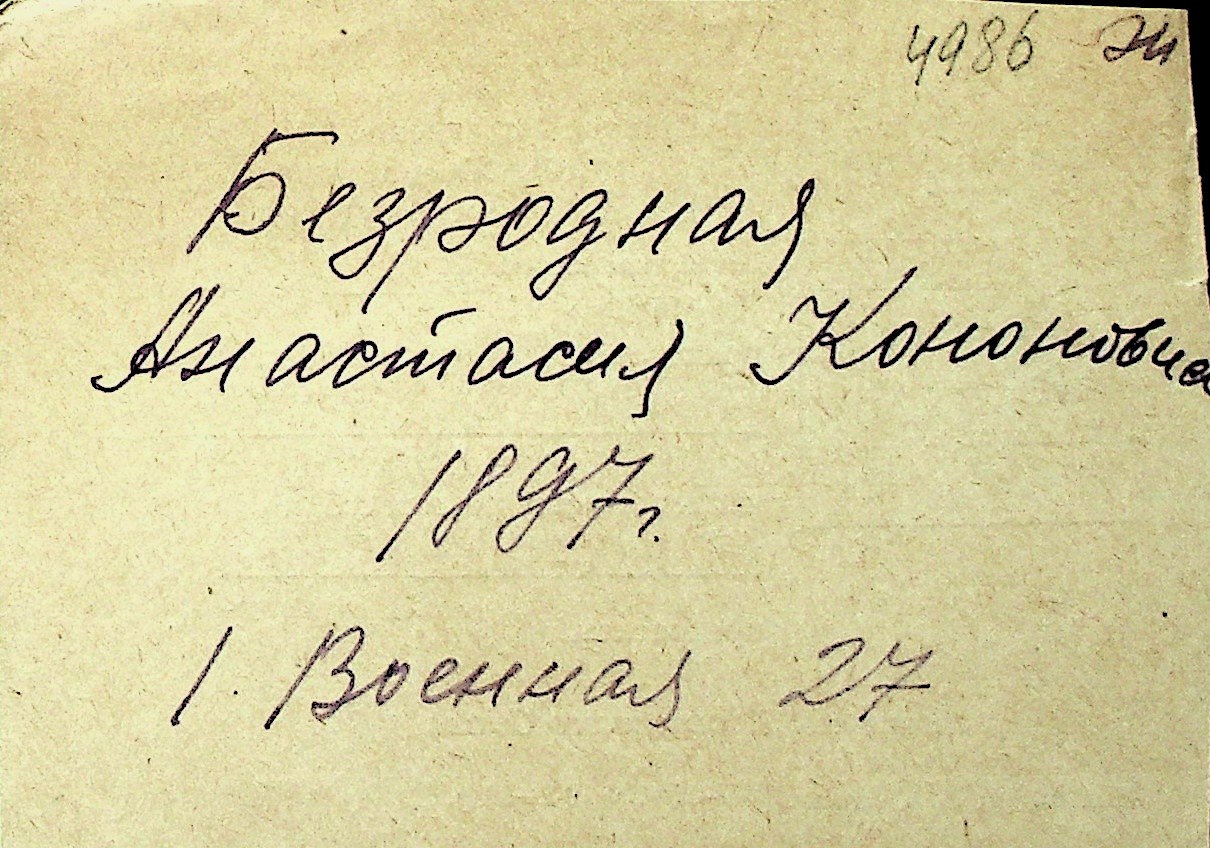 4986 ж
Безродная
Анастасия Кононовна
1897г.
1. Военная 27